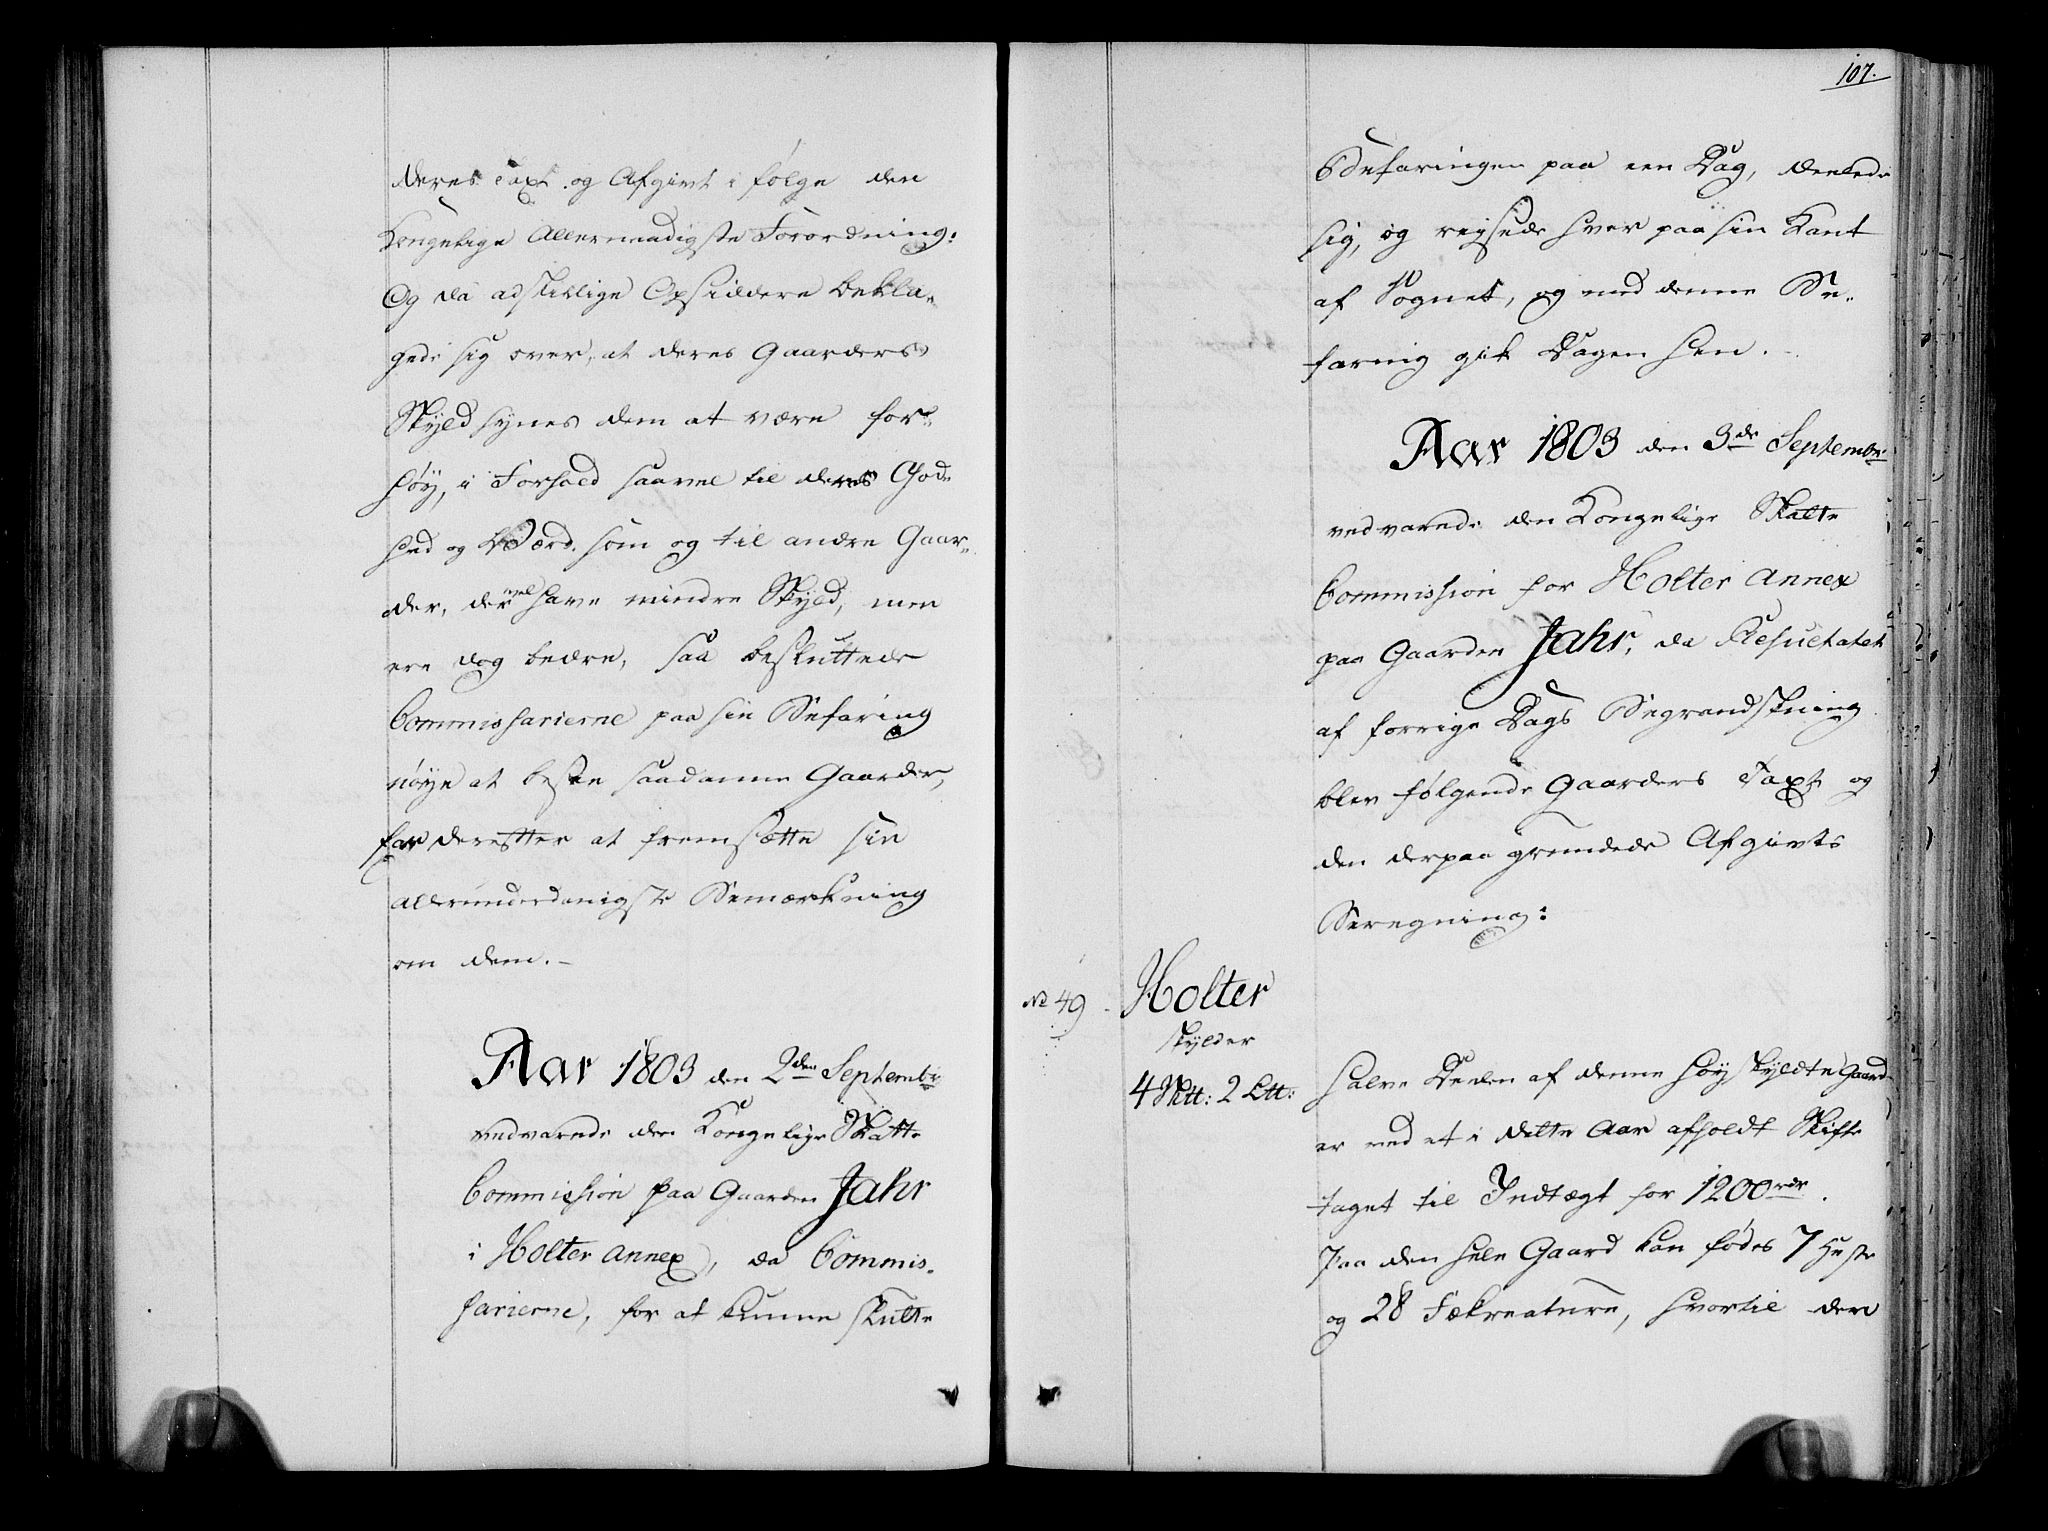 deres Taxt og Afgivt i følge den
Kongelige Allernaadigste Forordning:
Og da adskillige Opsiddere bekla-
gede sig over, at deres Gaarders
Skyld synes dem at være for
høy, i Forhold saavel til deres God-
hed og Værd. som og til andre Gaar-
der, der vel have mindre Skyld, men
ere dog bedre, saa besluttede
Commissarierne paa sin Befaring
nøye at besee saadanne Gaarder,
for derefter at fremsætte sin
allerunderdanigste Bemærkning
om dem.-
Aar 1803 den 2den Septembr
vedvarede den Kongelige Skatte
Commission paa Gaarden Jahr
i Holter Annex, da Commis-
sarierne, for at kunne slutte
107.
Befaringen paa een Dag, deelede
sig, og reysede hver paa sin Kant
af Sognet, og med denne Be-
faring gik Dagen hen.-
Aar 1803 den 3de Septembr
vedvarede den Kongelige Skatte
Commission for Holter Annex
paa Gaarden Jahr, da Resultatet
af forrige Dags Begrandskning
blev følgende Gaarders Taxt og
den derpaa grundede Afgivts
Beregning:
No 49. Holter
skylder
4 Skt: 2 Ltt:
Halve Deelen af denne høyskyldte Gaard
er ved et i dette Aar afholdt Skifte
taget til Indtægt for 1200 rdr.
Paa den hele Gaard kan fødes 7 Heste
og 28 Fækreature, hvortil der